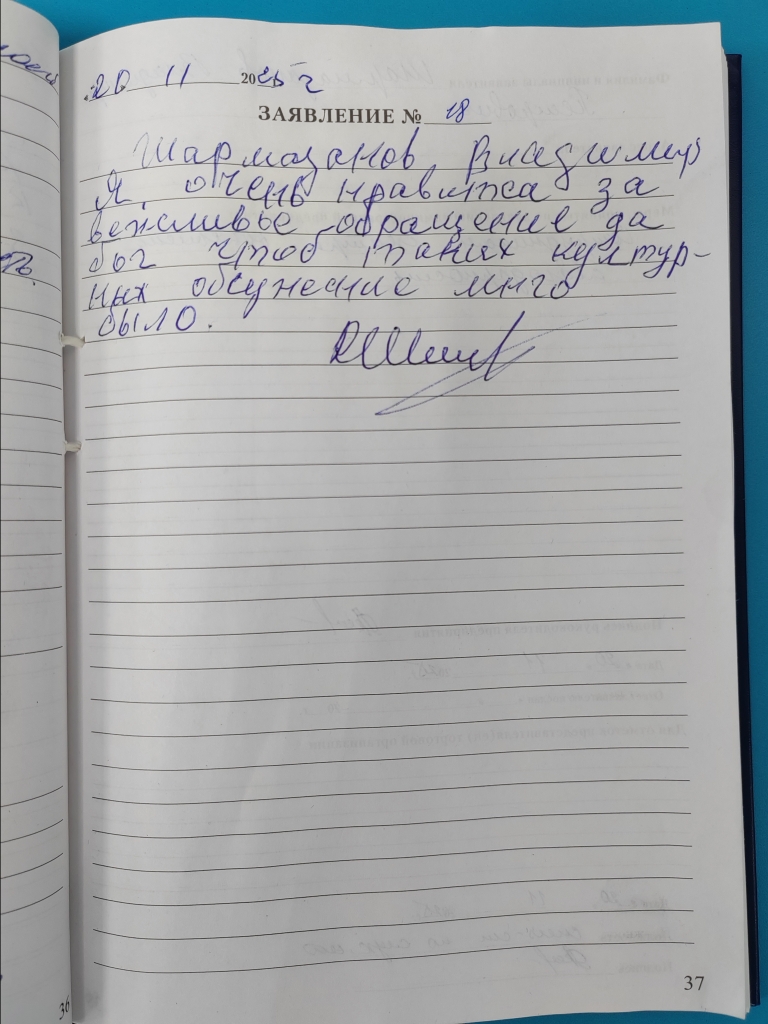 20 11 2025 г
ЗАЯВЛЕНИЕ № 18
Шармазанов Владимир
Я. очень нравится за
вежливье обращение да
бог чтоб таких култур-
ных обсужесние мнго
было.
37
36